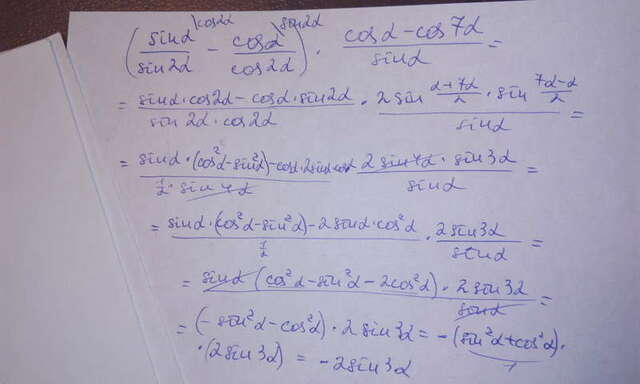 (sinα/sin2α \cos2α - cosα/cos2α \sin2α) · (cosα-cos7α)/sinα =
= (sinα·cos2α-cosα·sin2α)/(sin2α·cos2α) · (2sin (α+7α)/2 · sin (7α-α)/2)/sinα =
= (sinα·(cos²α-sin²α)-cosα·2sinα·cosα)/(1/2·sin4α) · (2sin4α·sin3α)/sinα =
= (sinα·(cos²α-sin²α)-2sinα·cos²α)/(1/2) · 2sin3α/sinα =
= sinα(cos²α-sin²α-2cos²α)·2sin3α/sinα =
= (-sin²α-cos²α)·2sin3α = -(sin²α+cos²α)·
1
·(2sin3α) = -2sin3α